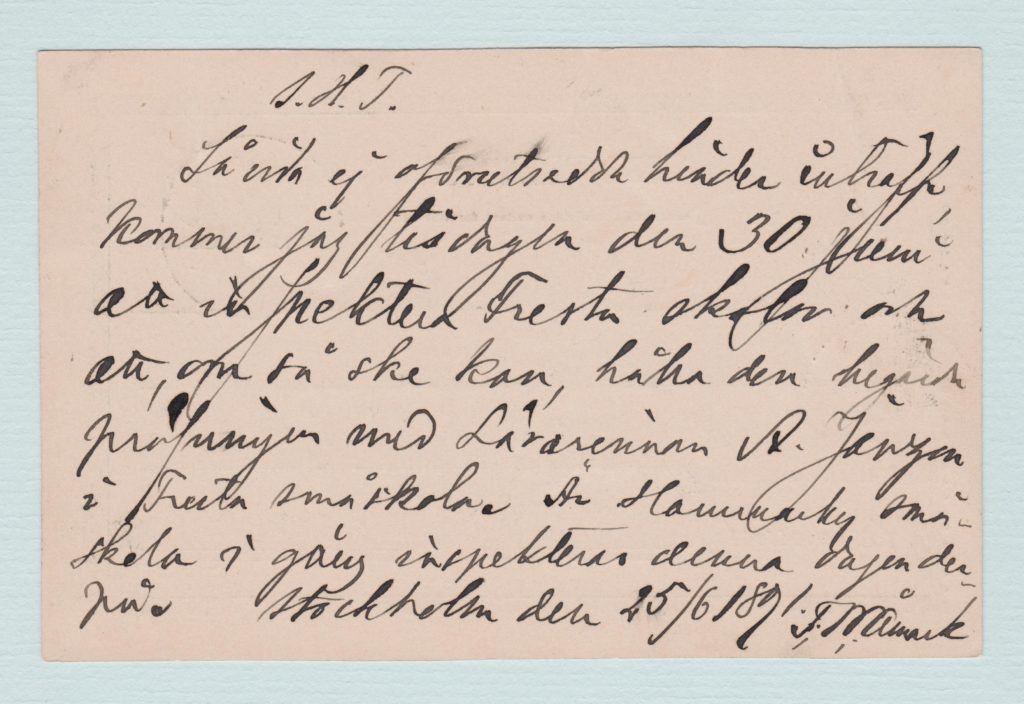 S. H. T.
Såvida ej oförutsedda hinder inträffa,
kommer jag tisdagen den 30 juni
att inspektera Fresta skolor och
att, om så ske kan, hålla den begärda
pröfningen med Lärarinnan A. Janzon
i Fresta småskola. Är Hammarby små-
skola i gång inspekteras denna dagen der-
på. Stockholm den 25/6 1891.